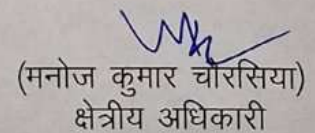 (मनोज कुमार चौरसिया)
क्षेत्रीय अधिकारी